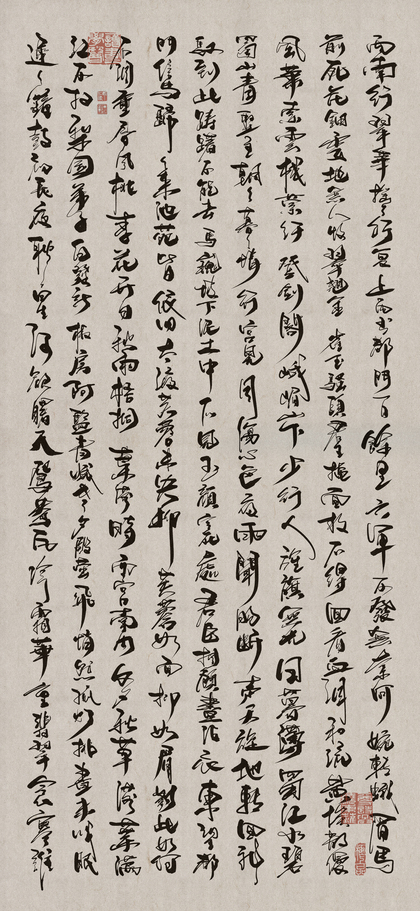 西南行翠華搖搖行復止西出都門百餘里六軍不發無奈何宛轉蛾眉馬
前死花鈿委地無人收翠翹金雀玉搔頭君王掩面救不得回看血淚和流黃埃散漫
風蕭索雲棧縈紆登劍閣峨嵋山下少行人旌旗無光日暮薄蜀江水碧
蜀山青聖主朝朝暮暮情行宮見月傷心色夜雨聞鈴腸斷聲天旋地轉回龍
馭到此躊躇不能去馬嵬坡下泥土中不見玉顏空死處君臣相顧盡沾衣東望都
門信馬歸歸來池苑皆依舊太液芙蓉未央柳芙蓉如面柳如眉對此如何
不淚垂春風桃李花開日秋雨梧桐葉落時西宮南內多秋草落葉滿
紅不掃梨園弟子白髮新椒房阿監青娥老夕殿螢飛悄然孤燈挑盡未成眠
遲遲鐘鼓初長夜耿耿星河欲曙天鴛鴦瓦冷霜華重翡翠衾寒誰